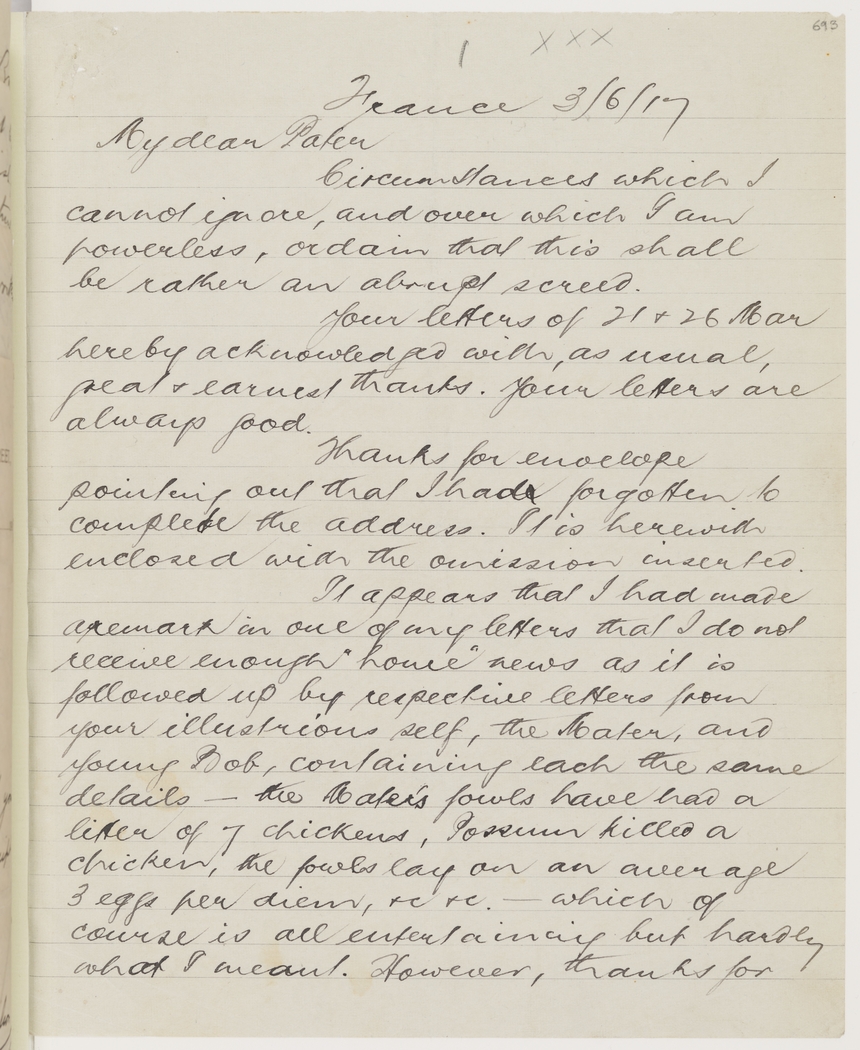 693
1 XXX
France 3/6/17
My dear Pater
Circumstances which I
cannot ignore, and over which I am
powerless, ordain that this shall
be rather an abrupt screed.
Your letters of 21 & 26 Mar
hereby acknowledged with, as usual,
great & earnest thanks. Your letters are
always good.
Thanks for envelope
pointing out that I had forgotten to
complete the address. It is herewith
enclosed with the omission inserted.
It appears that I had made
a remark in one of my letters that I do not
receive enough "home" news as it is
followed up by respective letters from
your illustrious self, the Mater, and
young Bob, containing each the same
details — the Mater's fowls have had a
litter of 7 chickens, Possum killed a
chicken, the fowls lay on an average
3 eggs per diem, &c &c. — which of
course is all entertaining but hardly
what I meant. However, thanks for